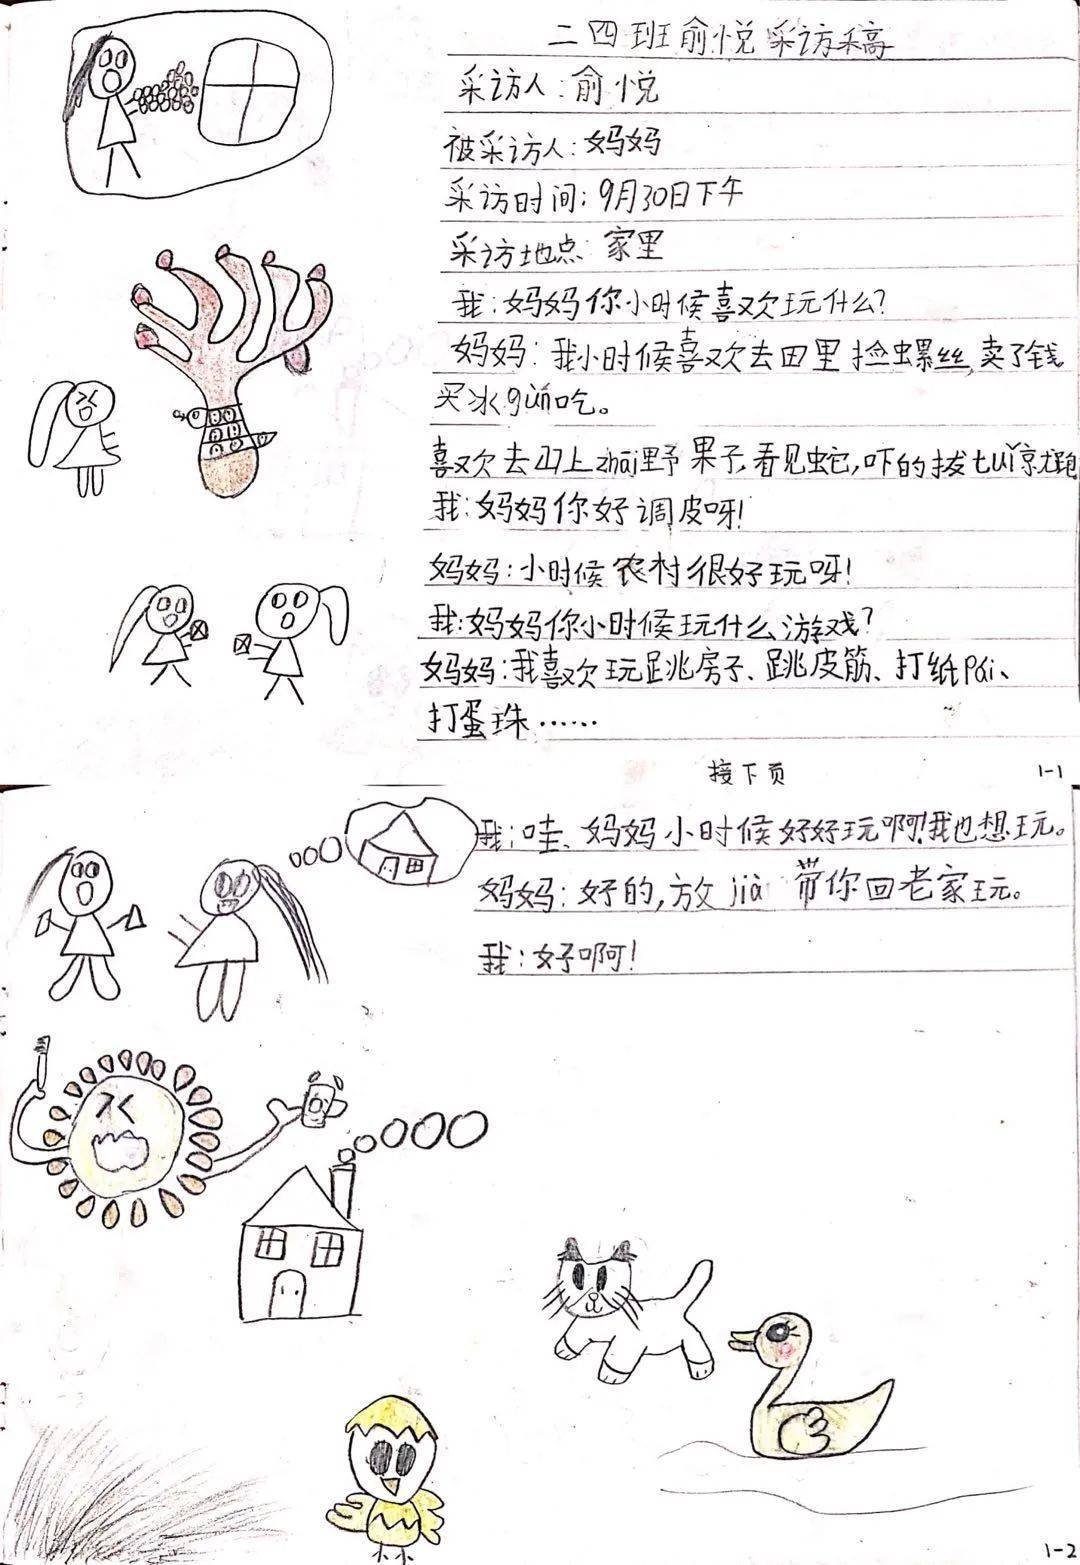 二四班俞悦采访稿
采访人:俞悦
被采访人:妈妈
采访时间:9月30日下午
采访地点 家里
我:妈妈你小时候喜欢玩什么?
妈妈:我小时候喜欢去田里捡螺丝,卖了钱
买冰gùn吃。
喜欢去山上zhāi野果子,看见蛇,吓的拔tuǐ就跑
我:妈妈你好调皮呀!
妈妈:小时候农村很好玩呀!
我:妈妈你小时候玩什么游戏?
妈妈:我喜欢玩跳房子、跳皮筋、打纸Pái、
打蛋珠……
接下页
1-1
我:哇、妈妈小时候好好玩啊!我也想玩。
妈妈:好的,放jià带你回老家玩。
我:好啊!
1-2